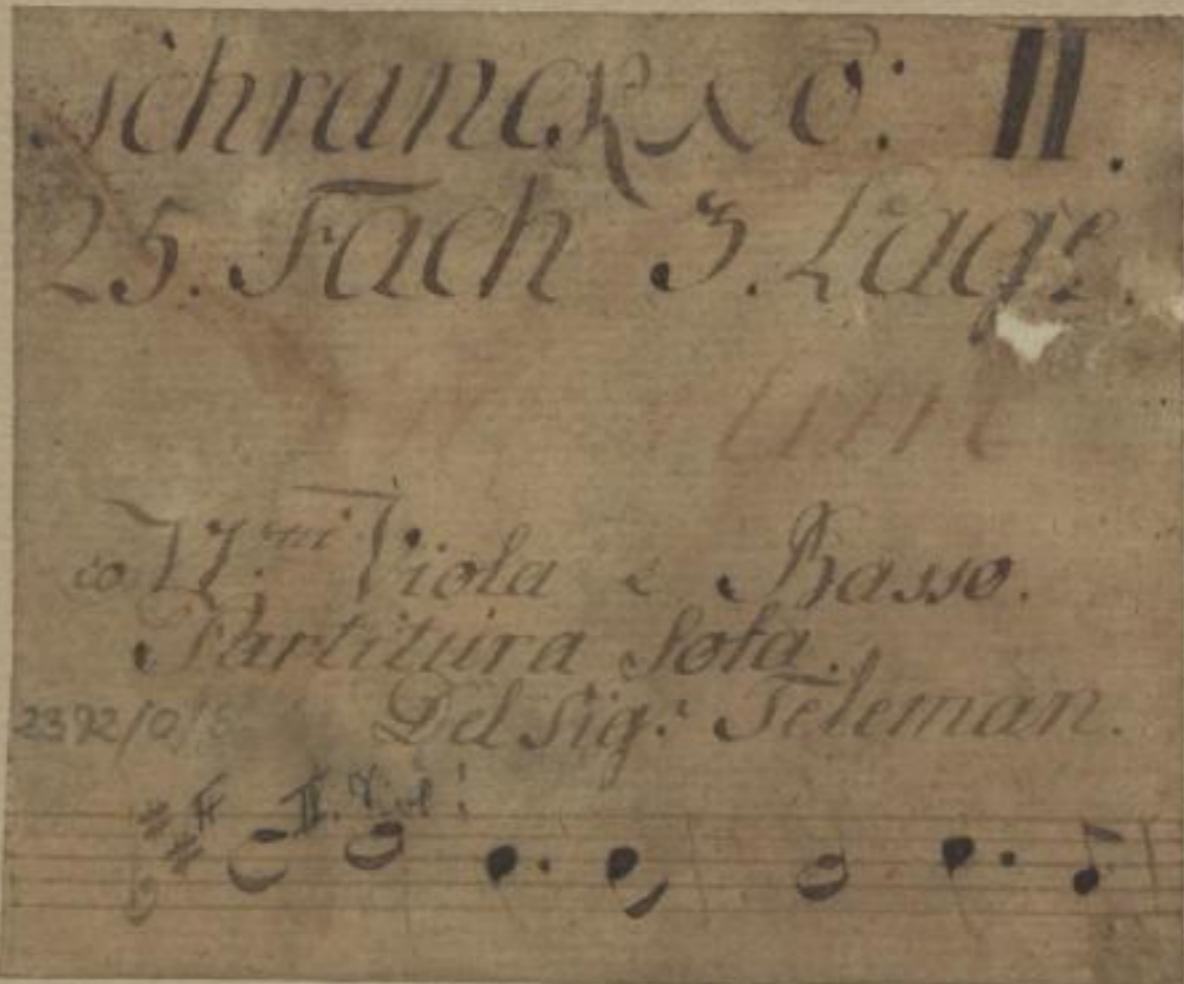 Schranck No: II.
25. Fach 3. Lage.
co VV.ni Viola e Basso.
Partitura Sola.
Del Sig.r Teleman.
2392/0/
II. Viol!